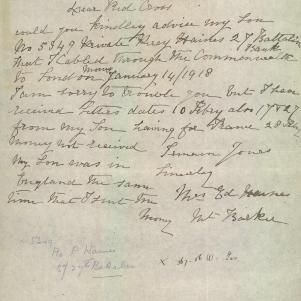 Dear Red Cross
would you kindley advise my Son
No 5349 Private Percy Haines 27 Battalion
that I Cabled through the Commonwealth Bank
to London Money January 14/1918
I am sorry to trouble you but I have
received Letters dates 10 Febry also 17 & 27
from my Son having for France 28
Money not received
My Son was in
England the same
time that I sent the
Money
I remain Yours
Sincerly
Mrs Ed Haines
Mt Barker
5349
Pte P Haines
27th Battalion